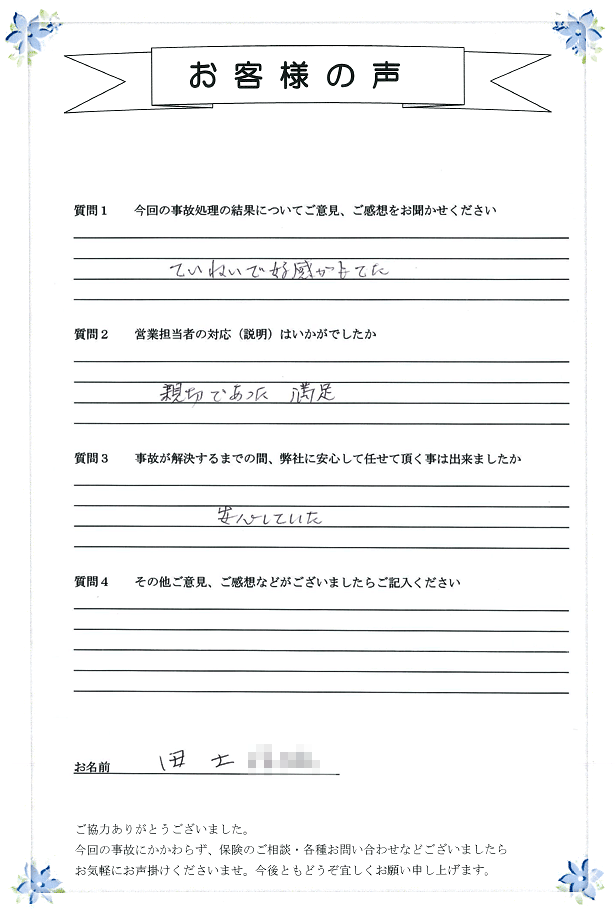 お客様の声
質問1 今回の事故処理の結果についてご意見、ご感想をお聞かせください
ていねいで好感がもてた
質問2 営業担当者の対応（説明）はいかがでしたか
親切であった 満足
質問3 事故が解決するまでの間、弊社に安心して任せて頂く事は出来ましたか
安心していた
質問4 その他ご意見、ご感想などがございましたらご記入ください
お名前
ご協力ありがとうございました。
今回の事故にかかわらず、保険のご相談・各種お問い合わせなどございましたら
お気軽にお声掛けくださいませ。今後ともどうぞ宜しくお願い申し上げます。